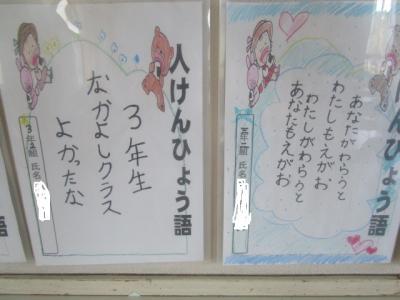 人けんひょう語
3年生
なかよしクラス
よかったな
3年2組 氏名
人けんひょう語
あなたがわらうと
わたしもえがお
わたしがわらうと
あなたもえがお
三年二組 氏名